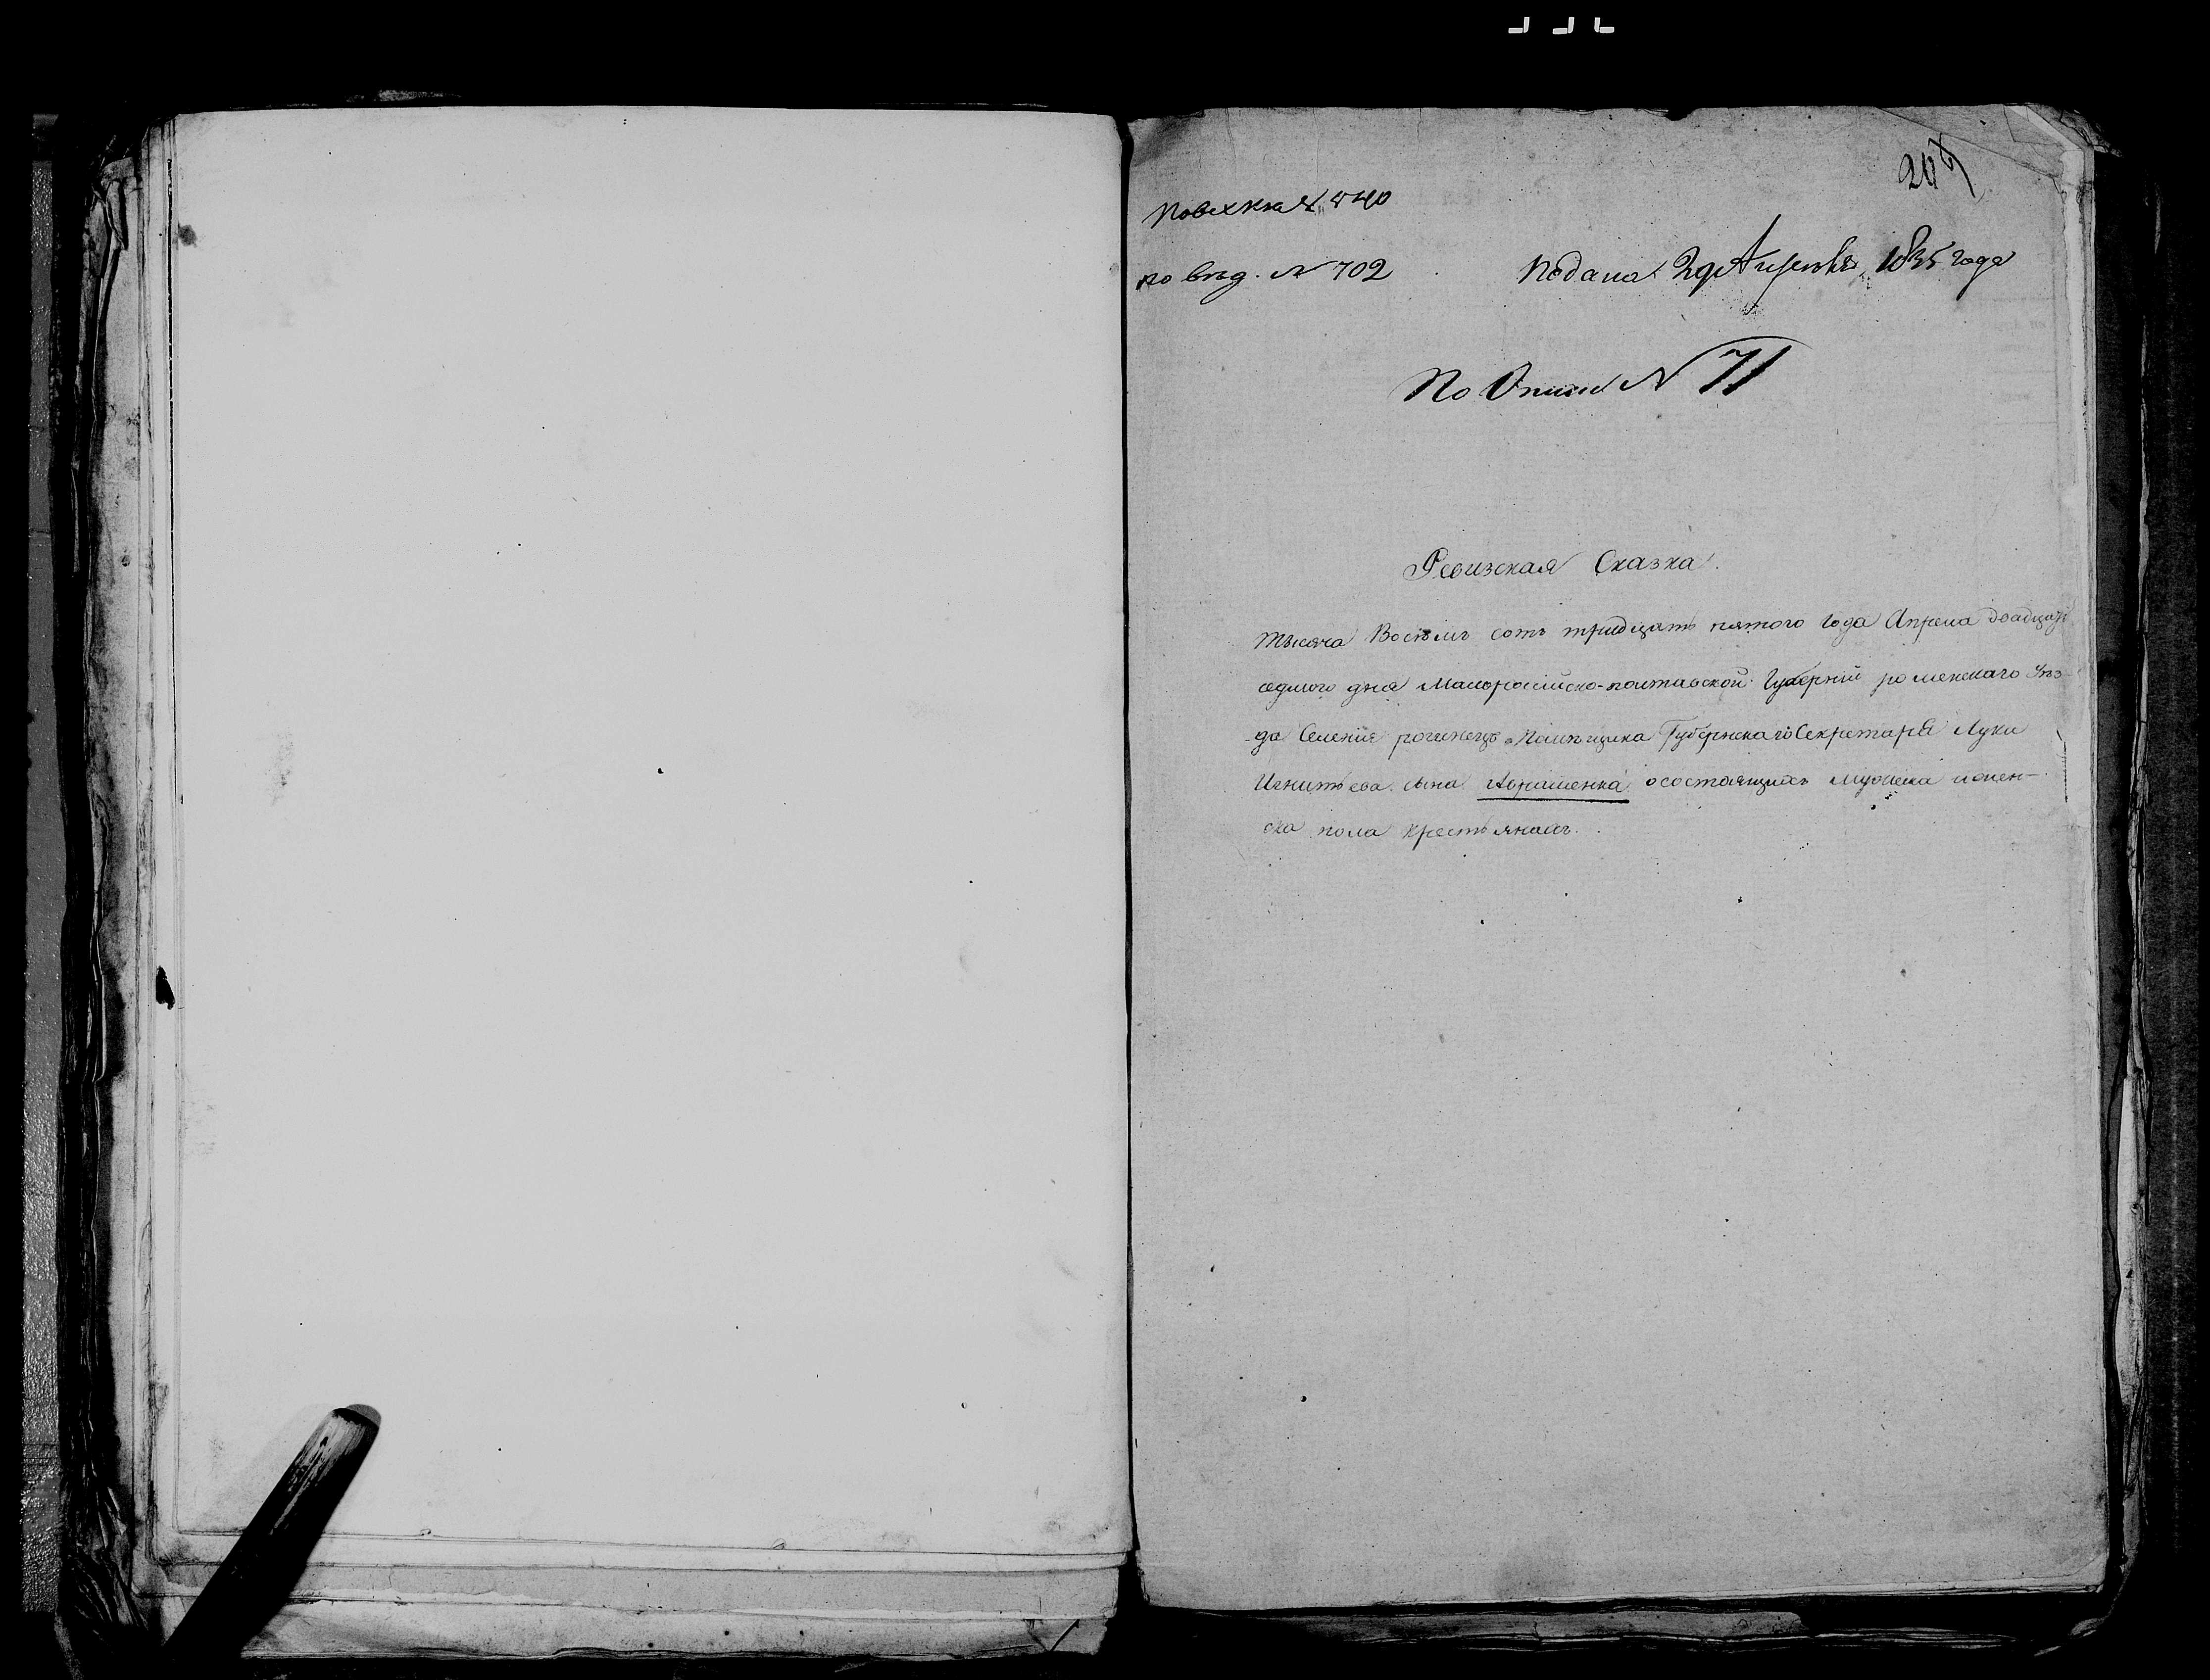 207
по вед. N 702
Подана 29 Апреля 1835 года
По Описи N 71
Ревизская Сказка.
тысяча Восемъ сотъ тридцать пятого года Апреля двадцать
седмого дня Малороссійско-полтавской Губерніи роменскаго Уез
-да Селенія рогинецъ Помещика Губернскаго Секретаря Луки
Игнатьева сына Аврашенка о состоящихъ мужеска и жен-
ска пола крестьянахъ.